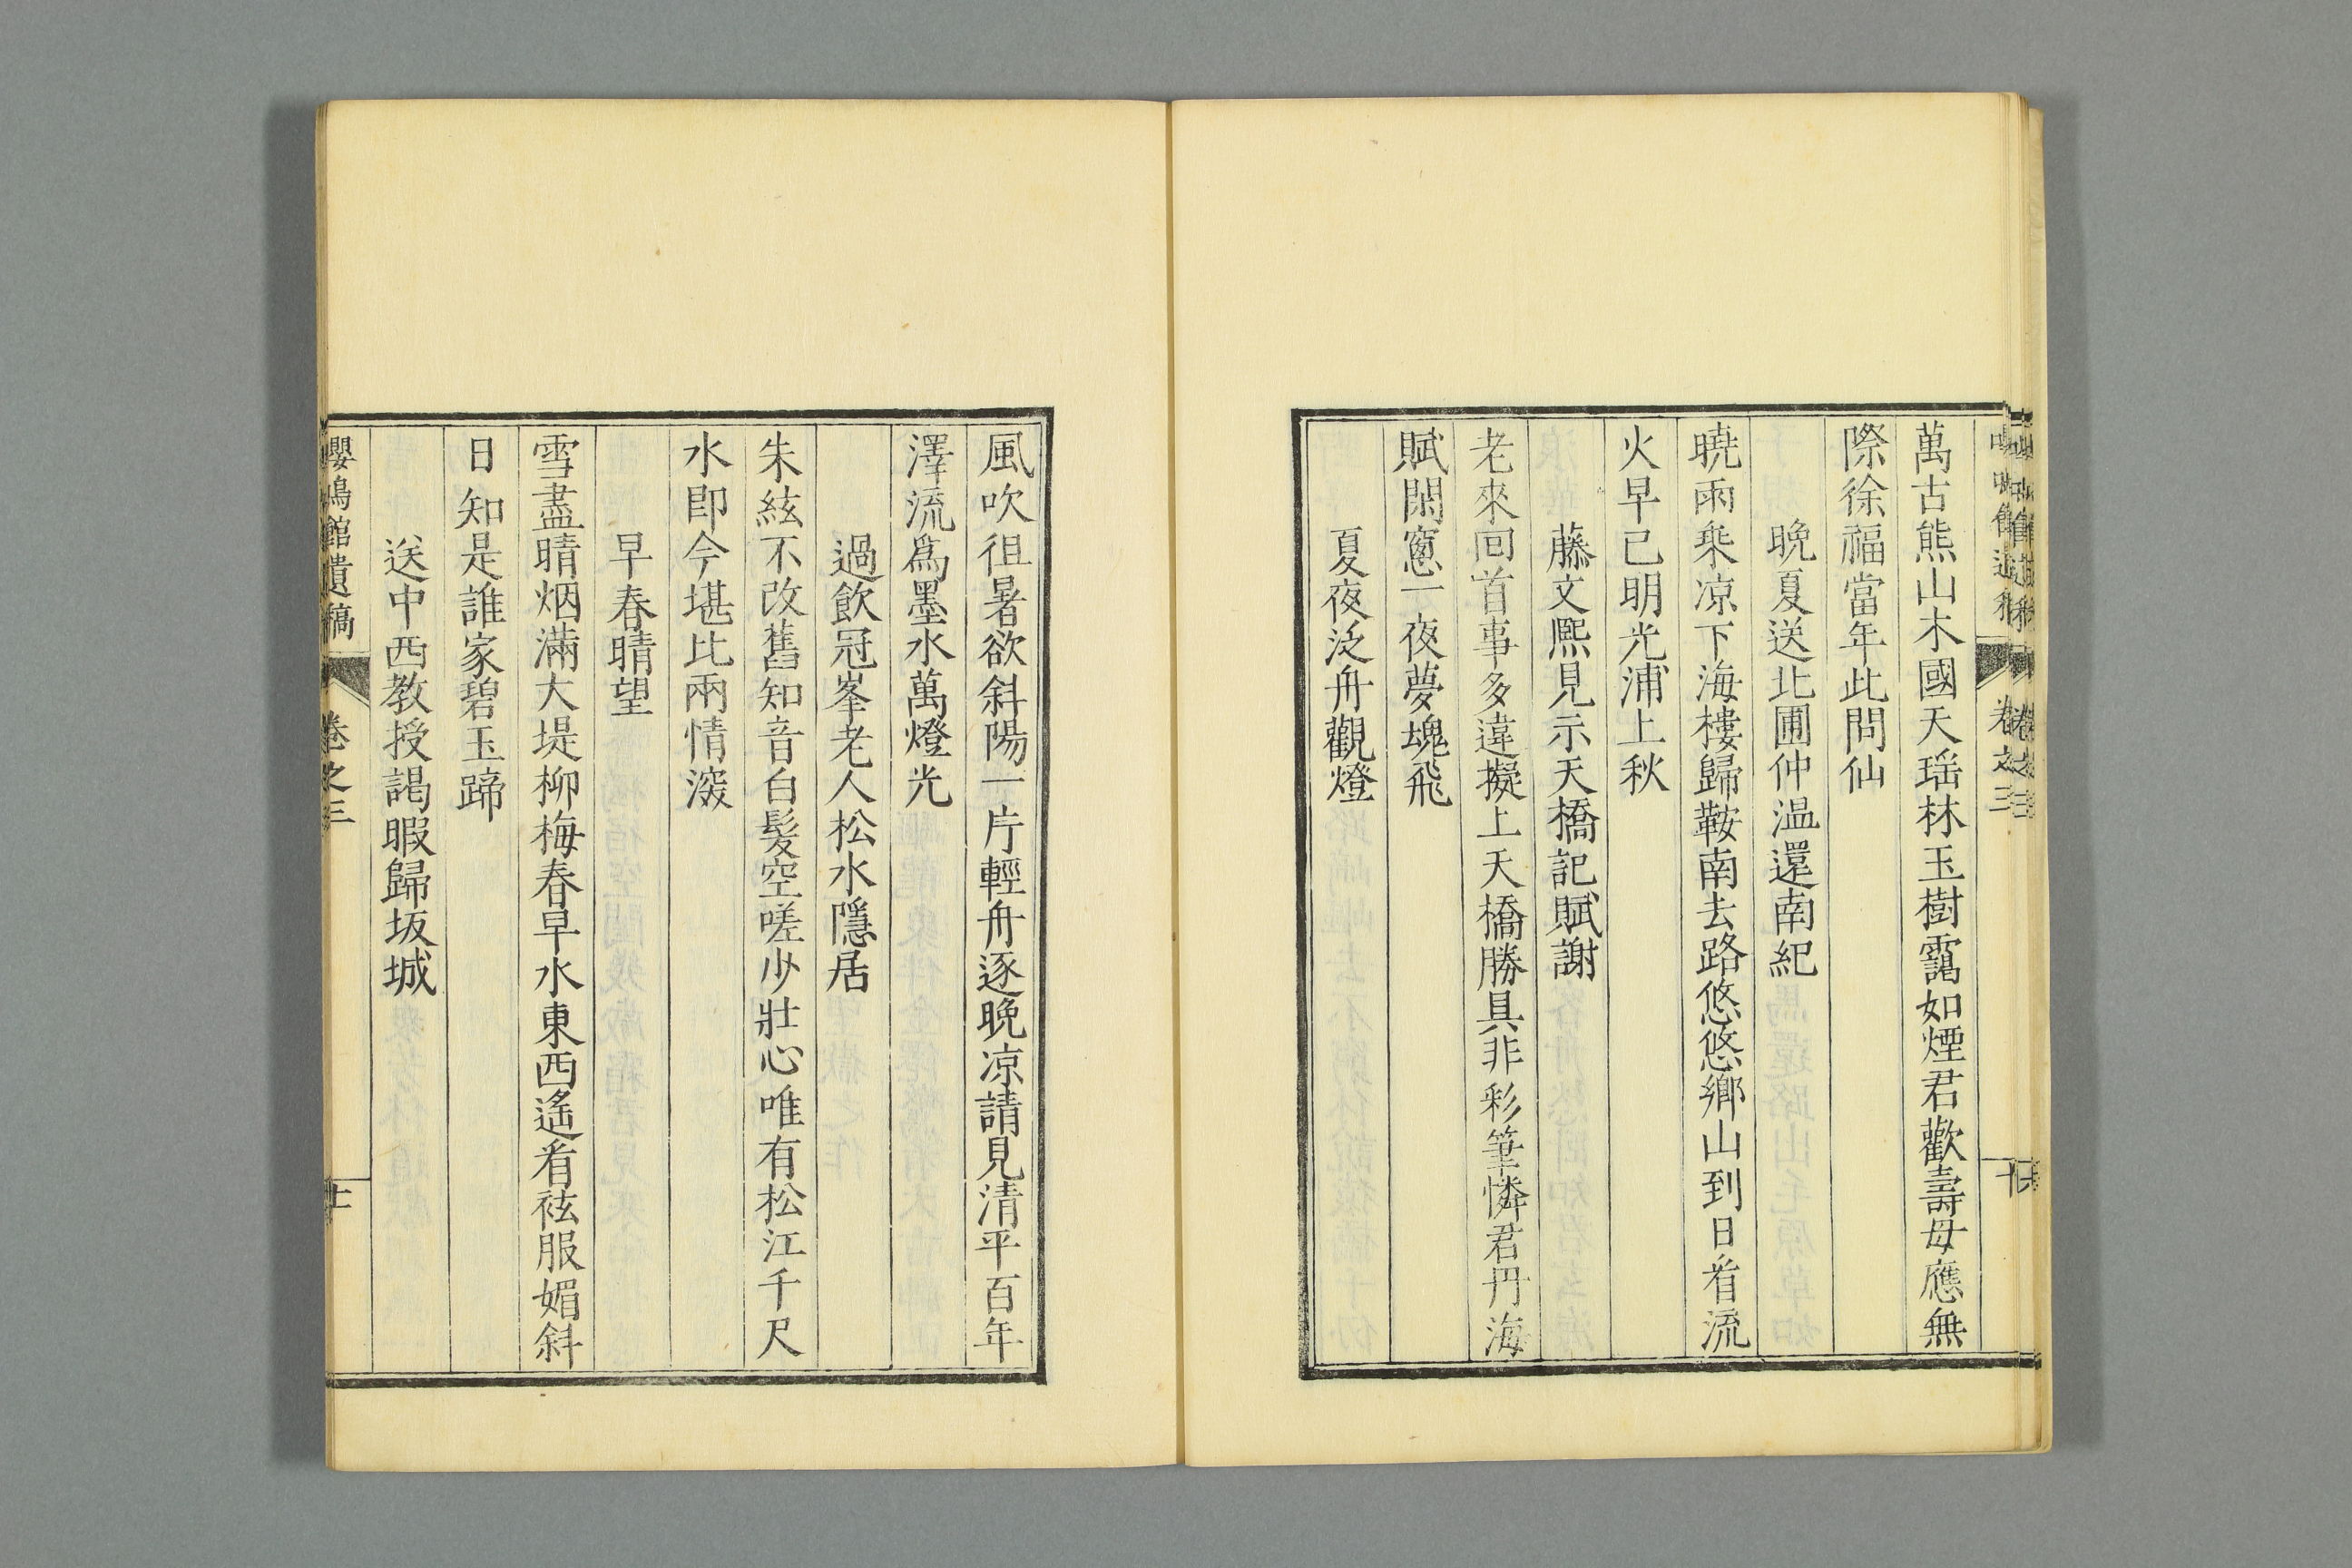 萬古熊山木國天瑶林玉樹靄如煙君歡壽母應無
際徐福當年此問仙
晩夏送北圃仲温還南紀
曉雨乘凉下海樓歸鞍南去路悠悠鄉山到日看流
火早已明光浦上秋
藤文熈見示天橋記賦謝
老來回首事多違擬上天橋勝具非彩筆憐君丹海
賦閑窻一夜夢塊飛
夏夜泛舟觀燈
風吹徂暑欲斜陽一片輕舟逐晩凉請見清平百年
澤流爲墨水萬燈光
過飮冠峯老人松水隱居
朱絃不改舊知音白髮空嗟少壯心唯有松江千尺
水卽今堪比兩情深
早春晴望
雪盡晴烟滿大堤柳梅春早水東西遙看袨服媚斜
日知是誰家碧玉蹄
送中西教授謁暇歸坂城
嚶鳴館遺稿 卷之三 十一